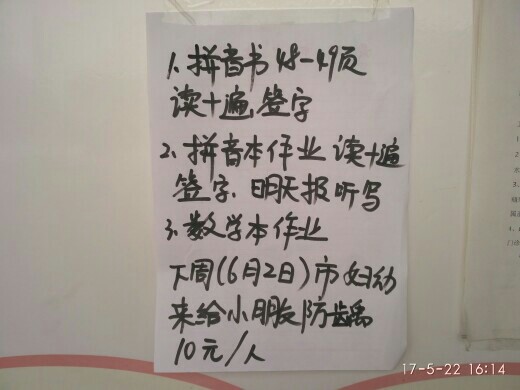 1、拼音书48-49页
读十遍,签字
2、拼音本作业 读十遍
签字、明天报听写
3、数学本作业
下周(6月2日)市妇幼
来给小朋友防龋齿
10元/人
17-5-22 16:14